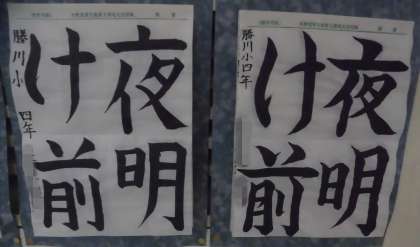 夜明
け前
勝川小
四年
夜明
け前
勝川小四年